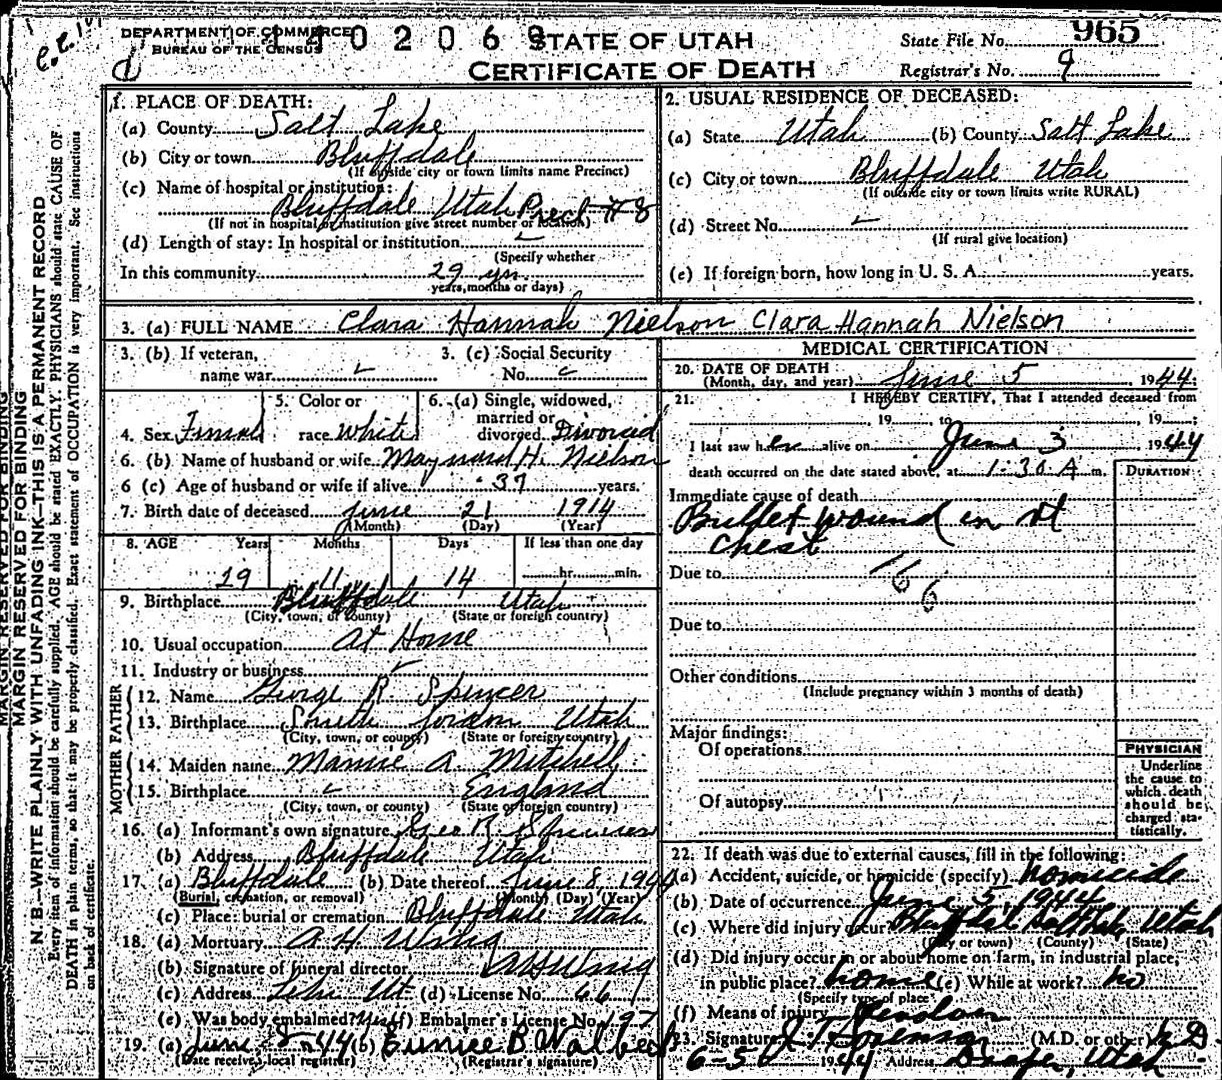 DEPARTMENT OF COMMERCE
BUREAU OF THE CENSUS
402060
STATE OF UTAH
CERTIFICATE OF DEATH
State File No. 965
Registrar's No. 9
MARGIN RESERVED FOR BINDING
N. B.—WRITE PLAINLY WITH UNFADING INK—THIS IS A PERMANENT RECORD
Every item of information should be carefully supplied. AGE should be stated EXACTLY. PHYSICIANS should state CAUSE OF
DEATH in plain terms, so that it may be properly classified. Exact statement of OCCUPATION is very important. See instructions
on back of certificate.
1. PLACE OF DEATH:
(a) County Salt Lake
(b) City or town Bluffdale
(If outside city or town limits name Precinct)
(c) Name of hospital or institution:
Bluffdale Utah Prect #8
(If not in hospital or institution give street number or location)
(d) Length of stay: In hospital or institution
(Specify whether
In this community 29 yrs
years, months or days)
2. USUAL RESIDENCE OF DECEASED:
(a) State Utah (b) County Salt Lake
(c) City or town Bluffdale Utah
(If outside city or town limits write RURAL)
(d) Street No.
(If rural give location)
(e) If foreign born, how long in U. S. A. years.
3. (a) FULL NAME Clara Hannah Nielson Clara Hannah Nielson
3. (b) If veteran,
name war
3. (c) Social Security
No.
4. Sex Female
5. Color or
race White
6. (a) Single, widowed,
married or
divorced Divorced
6. (b) Name of husband or wife Maynard H. Nielson
6 (c) Age of husband or wife if alive 37 years.
7. Birth date of deceased June 21 1914
(Month) (Day) (Year)
8. AGE Years Months Days If less than one day
29 11 14 hr. min.
9. Birthplace Bluffdale Utah
(City, town, or county) (State or foreign country)
10. Usual occupation At Home
11. Industry or business
FATHER
12. Name George R. Spencer
13. Birthplace South Jordon Utah
(City, town, or county) (State or foreign country)
MOTHER
14. Maiden name Mamie A. Mitchell
15. Birthplace England
(City, town, or county) (State or foreign country)
16. (a) Informant's own signature Geo R. Spencer
(b) Address Bluffdale Utah
17. (a) Bluffdale (b) Date thereof June 8, 1944
(Burial, cremation, or removal) (Month) (Day) (Year)
(c) Place: burial or cremation Bluffdale Utah
18. (a) Mortuary A H Wing
(b) Signature of funeral director A H Wing
(c) Address Lehi Ut (d) License No. 66
(e) Was body embalmed? Yes (f) Embalmer's License No. 197
19. (a) June 8-44 (b) Eunice B. Walbeck
(Date received local registrar) (Registrar's signature)
MEDICAL CERTIFICATION
20. DATE OF DEATH
(Month, day, and year) June 5, 1944
21. I HEREBY CERTIFY, That I attended deceased from
, 19 , to , 19 .
I last saw her alive on June 3 1944
death occurred on the date stated above, at 1-30 A m.
DURATION
Immediate cause of death
Bullet wound in rt
chest
Due to 166
Due to
Other conditions
(Include pregnancy within 3 months of death)
Major findings:
Of operations
Of autopsy
PHYSICIAN
Underline
the cause to
which death
should be
charged sta-
tistically.
22. If death was due to external causes, fill in the following:
(a) Accident, suicide, or homicide (specify) homicide
(b) Date of occurrence June 5, 1944
(c) Where did injury occur Bluffdale Salt Lake Utah
(City or town) (County) (State)
(d) Did injury occur in or about home on farm, in industrial place,
in public place? home (e) While at work? no
(Specify type of place)
(f) Means of injury
23. Signature J. T. Sorenson (M.D. or other) M.D.
6-5 1944 Address Draper, Utah